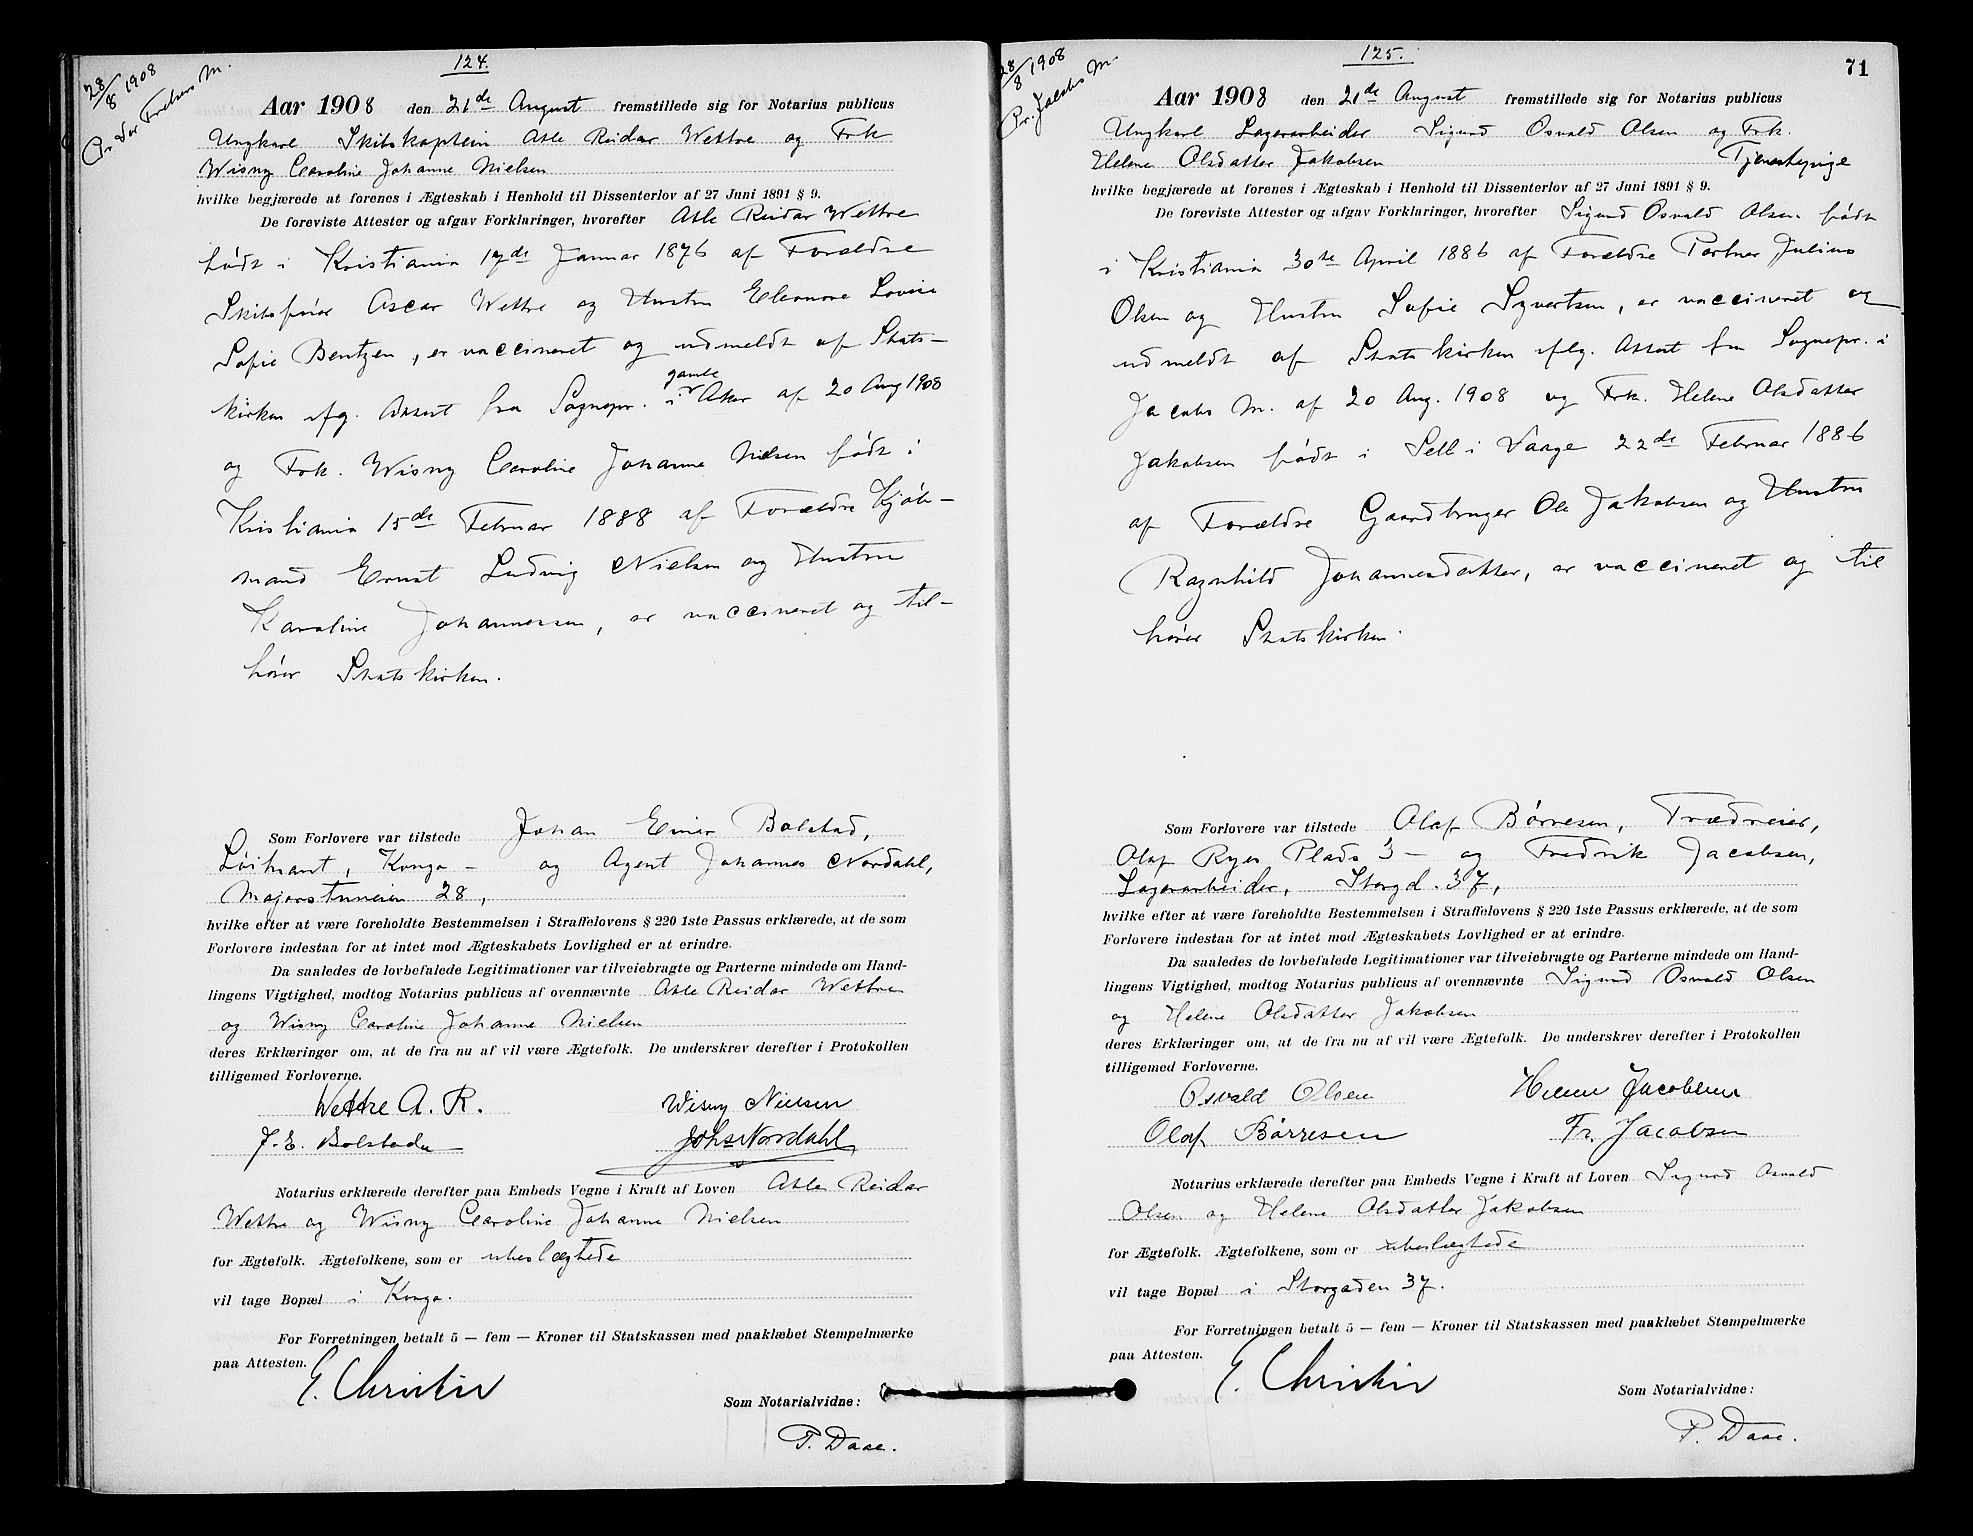 124.
28/8 1908
Pr. Vor Frelsers M.
Aar 1908 den 21de August fremstillede sig for Notarius publicus
Ungkarl Skibskaptein Atle Reidar Wettre og Frk
Wisny Caroline Johanne Nielsen
hvilke begjærede at forenes i Ægteskab i Henhold til Dissenterlov af 27 Juni 1891 § 9.
De foreviste Attester og afgav Forklaringer, hvorefter Atle Reidar Wettre
født i Kristiania 17de Januar 1876 af Forældre
Skibsfører Oscar Wettre og Hustru Eleonore Lovise
Sofie Bentzen, er vaccineret og udmeldt af Stats-
kirken ifg. Attest fra Sognepr. i gamle Aker af 20 Aug 1908
og Frk. Wisny Caroline Johanne Nielsen født i
Kristiania 15de Februar 1888 af Forældre Kjøb-
mand Ernst Ludvig Nielsen og Hustru
Karoline Johannessen, er vaccineret og til-
hører Statskirken.
Som Forlovere var tilstede Johan Einar Bolstad,
Løitnant, Kongo - og Agent Johannes Nordahl,
Majorstuveien 28,
hvilke efter at være foreholdte Bestemmelsen i Straffelovens § 220 1ste Passus erklærede, at de som
Forlovere indestaa for at intet mod Ægteskabets Lovlighed er at erindre.
Da saaledes de lovbefalede Legitimationer var tilveiebragte og Parterne mindede om Hand-
lingens Vigtighed, modtog Notarius publicus af ovennævnte Atle Reidar Wettre
og Wisny Caroline Johanne Nielsen
deres Erklæringer om, at de fra nu af vil være Ægtefolk. De underskrev derefter i Protokollen
tilligemed Forloverne.
Wettre A. R. Wisny Nielsen
J. E. Bolstad Johs Nordahl
Notarius erklærede derefter paa Embeds Vegne i Kraft af Loven Atle Reidar
Wettre og Wisny Caroline Johanne Nielsen
for Ægtefolk. Ægtefolkene, som er ubeslægtede
vil tage Bopæl i Kongo.
For Forretningen betalt 5 — fem — Kroner til Statskassen med paaklæbet Stempelmærke
paa Attesten.
E. Christie
Som Notarialvidne:
P. Daae.
125.
71
28/8 1908
Pr. Jakobs M.
Aar 1908 den 21de August fremstillede sig for Notarius publicus
Ungkarl Lagerarbeider Sigurd Osvald Olsen og Frk.
Helene Olsdatter Jakobsen Tjenestepige
hvilke begjærede at forenes i Ægteskab i Henhold til Dissenterlov af 27 Juni 1891 § 9.
De foreviste Attester og afgav Forklaringer, hvorefter Sigurd Osvald Olsen født
i Kristiania 30te April 1886 af Forældre Portner Julius
Olsen og Hustru Sofie Syvertsen, er vaccineret og
udmeldt af Statskirken iflg. Attest fra Sognepr. i
Jacobs M. af 20 Aug. 1908 og Frk. Helene Olsdatter
Jakobsen født i Sell i Vaage 22de Februar 1886
af Forældre Gaardbruger Ole Jakobsen og Hustru
Ragnhild Johannesdatter, er vaccineret og til
hører Statskirken.
Som Forlovere var tilstede Olaf Børresen, Trædreier,
Olaf Ryes Plads 3 - og Fredrik Jacobsen,
Lagerarbeider, Storgd. 37,
hvilke efter at være foreholdte Bestemmelsen i Straffelovens § 220 1ste Passus erklærede, at de som
Forlovere indestaa for at intet mod Ægteskabets Lovlighed er at erindre.
Da saaledes de lovbefalede Legitimationer var tilveiebragte og Parterne mindede om Hand-
lingens Vigtighed, modtog Notarius publicus af ovennævnte Sigurd Osvald Olsen
og Helene Olsdatter Jakobsen
deres Erklæringer om, at de fra nu af vil være Ægtefolk. De underskrev derefter i Protokollen
tilligemed Forloverne.
Osvald Olsen Helene Jacobsen
Olaf Børresen Fr. Jacobsen
Notarius erklærede derefter paa Embeds Vegne i Kraft af Loven Sigurd Osvald
Olsen og Helene Olsdatter Jakobsen
for Ægtefolk. Ægtefolkene, som er ubeslægtede
vil tage Bopæl i Storgaden 37.
For Forretningen betalt 5 — fem — Kroner til Statskassen med paaklæbet Stempelmærke
paa Attesten.
E. Christie
Som Notarialvidne:
P. Daae.